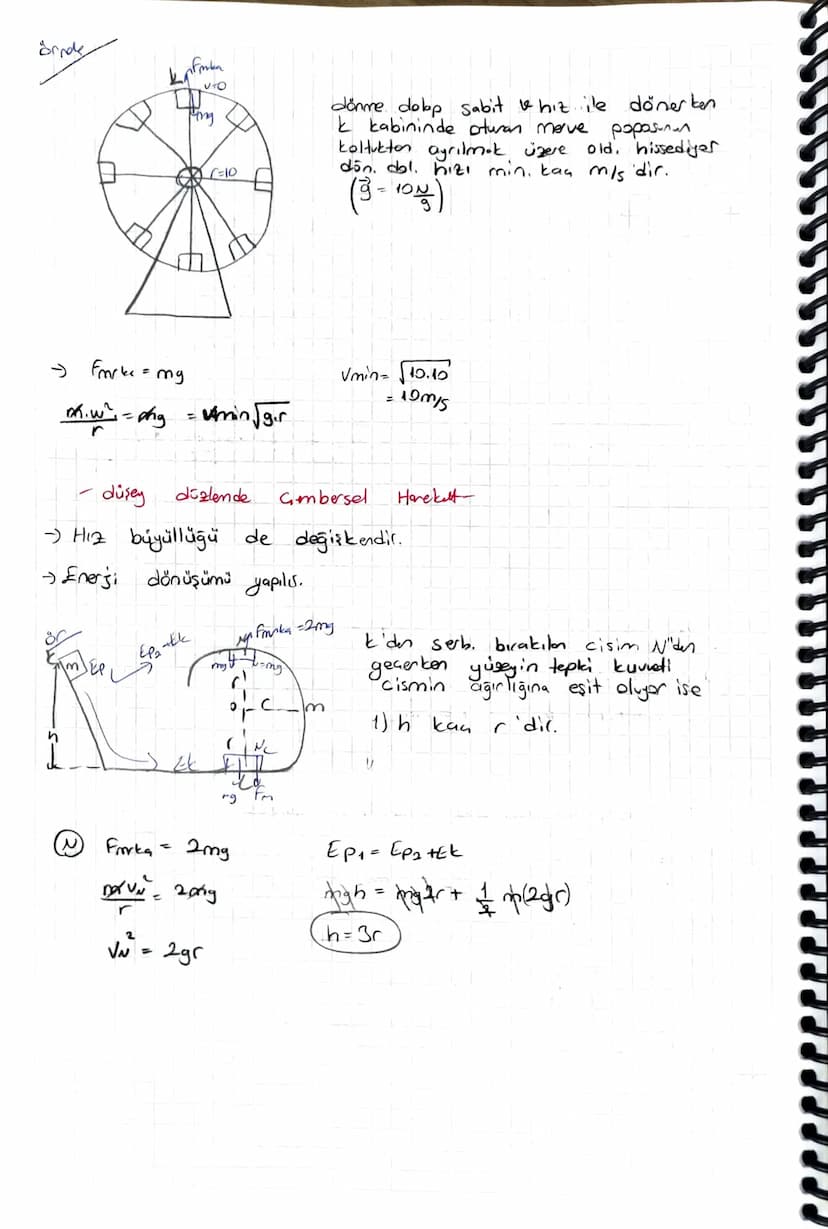 örnde
K Fmrka
v=0
mg
r=10
dönme dolap sabit hız ile dönerken
K kabininde oturan merve poposunun
koltuktan ayrılmak üzere old. hissediyor
dön. dol. hızı min. kaç m/s 'dir.
(g = 10 N/g)
→ Fmrkz = mg
m.w²/r = mg = vmin √g.r
Vmin= √10.10
= 10m/s
- düşey düzlende Çımbersel Hareket
→ Hız büyüllüğü de değişkendir.
→ Enerji dönüşümü yapılıs.
ör
K
m
Ep
Ep2+Ek
N Fmrka =2mg
mg =mg
r
o C m
h
r
Ek
L
mg Fm
K'dan serb. bırakılan cisim N'den
geçerken yüzeyin tepki kuvveti
cismin ağırlığına eşit oluyor ise
1) h kaç r 'dir.
(N) Fmrka = 2mg
m VN²/r = 2mg
VN² = 2gr
Ep1 = Ep2 +Ek
mgh = mg2r + 1/2 m(2gr)
h = 3r